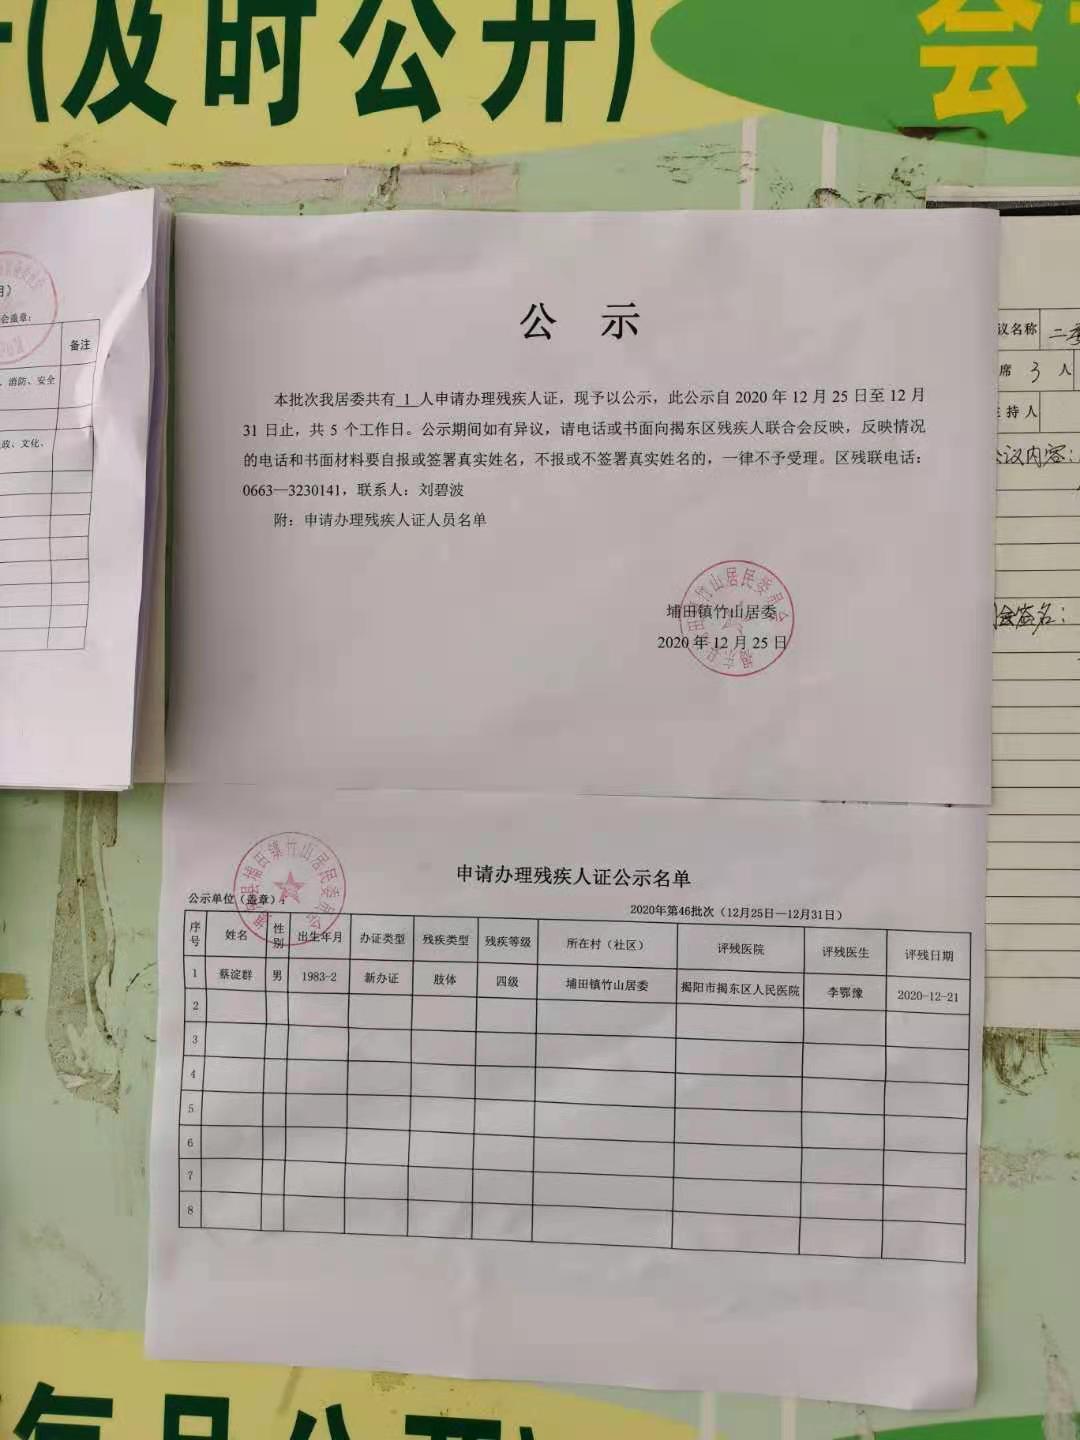 (及时公开)
会
公 示
本批次我居委共有 1 人申请办理残疾人证，现予以公示，此公示自 2020 年 12 月 25 日至 12 月
31 日止，共 5 个工作日。公示期间如有异议，请电话或书面向揭东区残疾人联合会反映，反映情况
的电话和书面材料要自报或签署真实姓名，不报或不签署真实姓名的，一律不予受理。区残联电话：
0663—3230141，联系人：刘碧波
附：申请办理残疾人证人员名单
埔田镇竹山居委
2020 年 12 月 25 日
申请办理残疾人证公示名单
公示单位（盖章）：
2020年第46批次（12月25日—12月31日）
序号 姓名 性别 出生年月 办证类型 残疾类型 残疾等级 所在村（社区） 评残医院 评残医生 评残日期
1 蔡淀群 男 1983-2 新办证 肢体 四级 埔田镇竹山居委 揭阳市揭东区人民医院 李鄂豫 2020-12-21
2
3
4
5
6
7
8
月）
会盖章：
备注
、消防、安全
政、文化、
议名称
席 3 人
主持人
会议内容：
会签名：